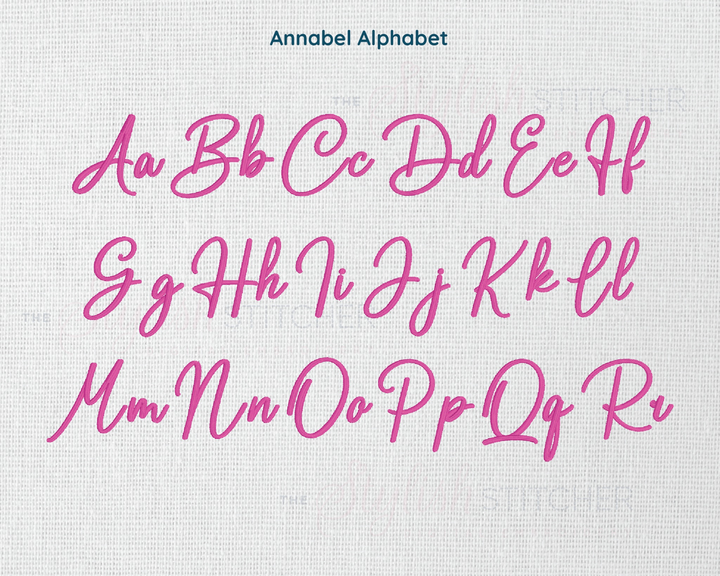 Annabel Alphabet
THE STITCHER
Aa Bb Cc Dd Ee Ff
Gg Hh Ii Jj Kk Ll
THE STITCHER
Mm Nn Oo Pp Qq Rr
THE STITCHER